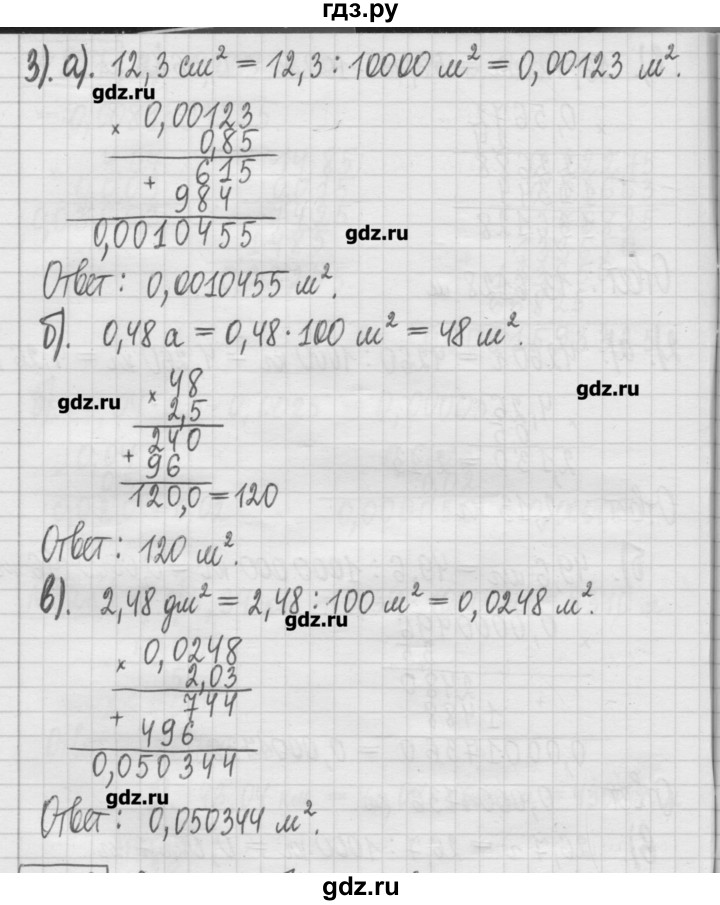 гдз.ру
3). а). 12,3 см² = 12,3 : 10000 м² = 0,00123 м².
gdz.ru
× 0,00123
0,85
+ 615
984
0,0010455
gdz.ru
Ответ: 0,0010455 м².
б). 0,48 а = 0,48 · 100 м² = 48 м².
gdz.ru
× 48
2,5
gdz.ru
240
+ 96
120,0 = 120
Ответ: 120 м².
в). 2,48 дм² = 2,48 : 100 м² = 0,0248 м².
gdz.ru
× 0,0248
2,03
+ 744
496
0,050344
gdz.ru
Ответ: 0,050344 м².
gdz.ru